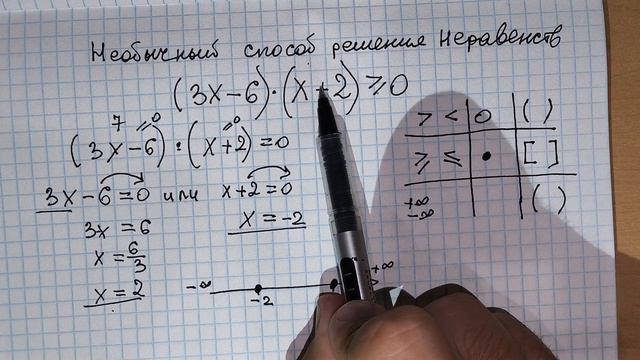 Необычный способ решения неравенств
(3x-6)·(x+2)⩾0
7 =0 =0
(3x-6)·(x+2)=0
3x-6=0 или x+2=0
3x=6
x=-2
x=6/3
x=2
-∞ -2 +∞
> < o ( )
⩾ ⩽ • [ ]
+∞
-∞ ( )